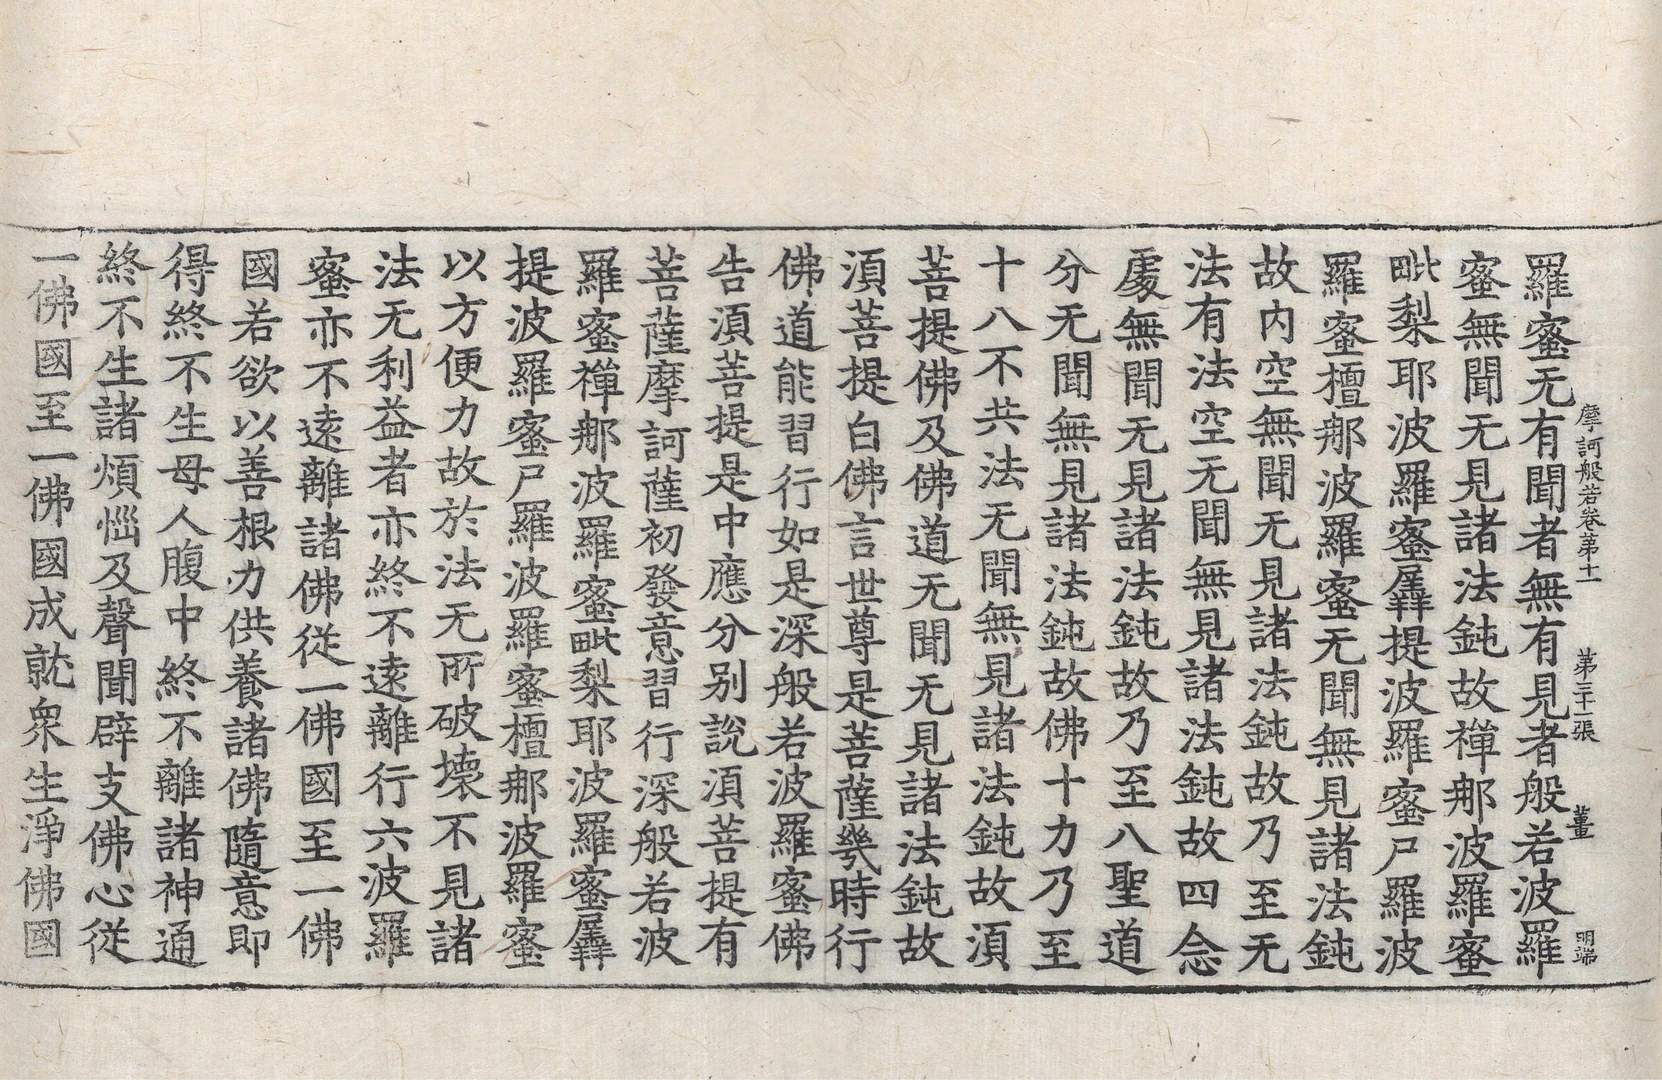 摩訶般若卷第十一　第二十一張　董畫　明端
羅蜜无有聞者無有見者般若波羅
蜜無聞无見諸法鈍故禪那波羅蜜
毗梨耶波羅蜜羼提波羅蜜尸羅波
羅蜜檀那波羅蜜无聞無見諸法鈍
故内空無聞无見諸法鈍故乃至无
法有法空无聞無見諸法鈍故四念
處無聞无見諸法鈍故乃至八聖道
分无聞無見諸法鈍故佛十力乃至
十八不共法无聞無見諸法鈍故湏
菩提佛及佛道无聞无見諸法鈍故
湏菩提白佛言世尊是菩薩幾時行
佛道能習行如是深般若波羅蜜佛
告湏菩提是中應分别說湏菩提有
菩薩摩訶薩初發意習行深般若波
羅蜜禪那波羅蜜毗梨耶波羅蜜羼
提波羅蜜尸羅波羅蜜檀那波羅蜜
以方便力故於法无所破壞不見諸
法无利益者亦終不遠離行六波羅
蜜亦不遠離諸佛從一佛國至一佛
國若欲以善根力供養諸佛隨意即
得終不生母人腹中終不離諸神通
終不生諸煩惱及聲聞辟支佛心從
一佛國至一佛國成就衆生淨佛國